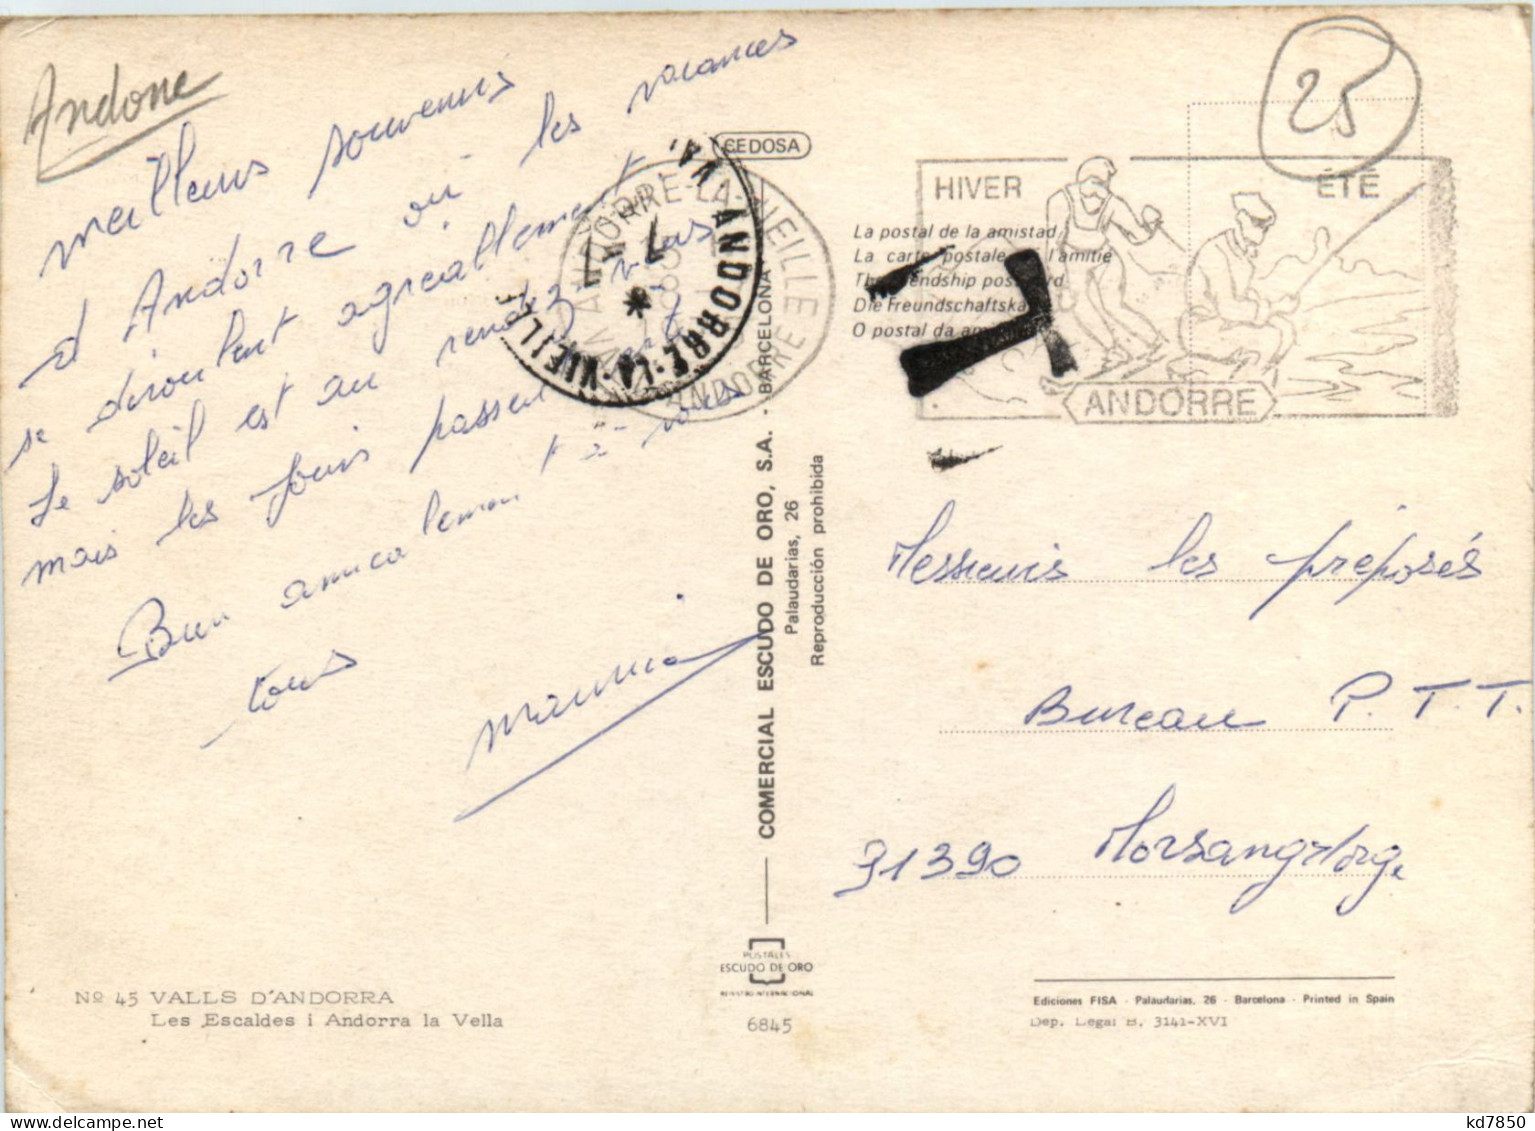 Andorre
25
Meilleurs souvenirs
d'Andorre où les vacances
se déroulent agréablement
Le soleil est au rendez vous
mais les jours passent
Bien amicalement à vous
tous
Maurice
CEDOSA
ANDORRE-LA-VIEILLE
ANDORRE-LA-VIEILLE
ANDORRE
HIVER
ÉTÉ
ANDORRE
La postal de la amistad
La carte postale l'amitie
Die Freundschaftska
O postal da
T
COMERCIAL ESCUDO DE ORO, S.A. - BARCELONA
Palaudarias, 26
Reproducción prohibida
Messieurs les préposés
Bureau P.T.T.
91390 Morsang s/Orge
POSTALES
ESCUDO DE ORO
REGISTRO INTERNACIONAL
6845
Nº 45 VALLS D'ANDORRA
Les Escaldes i Andorra la Vella
Ediciones FISA - Palaudarias, 26 - Barcelona - Printed in Spain
Dep. Legal B. 3141-XVI
kd7850